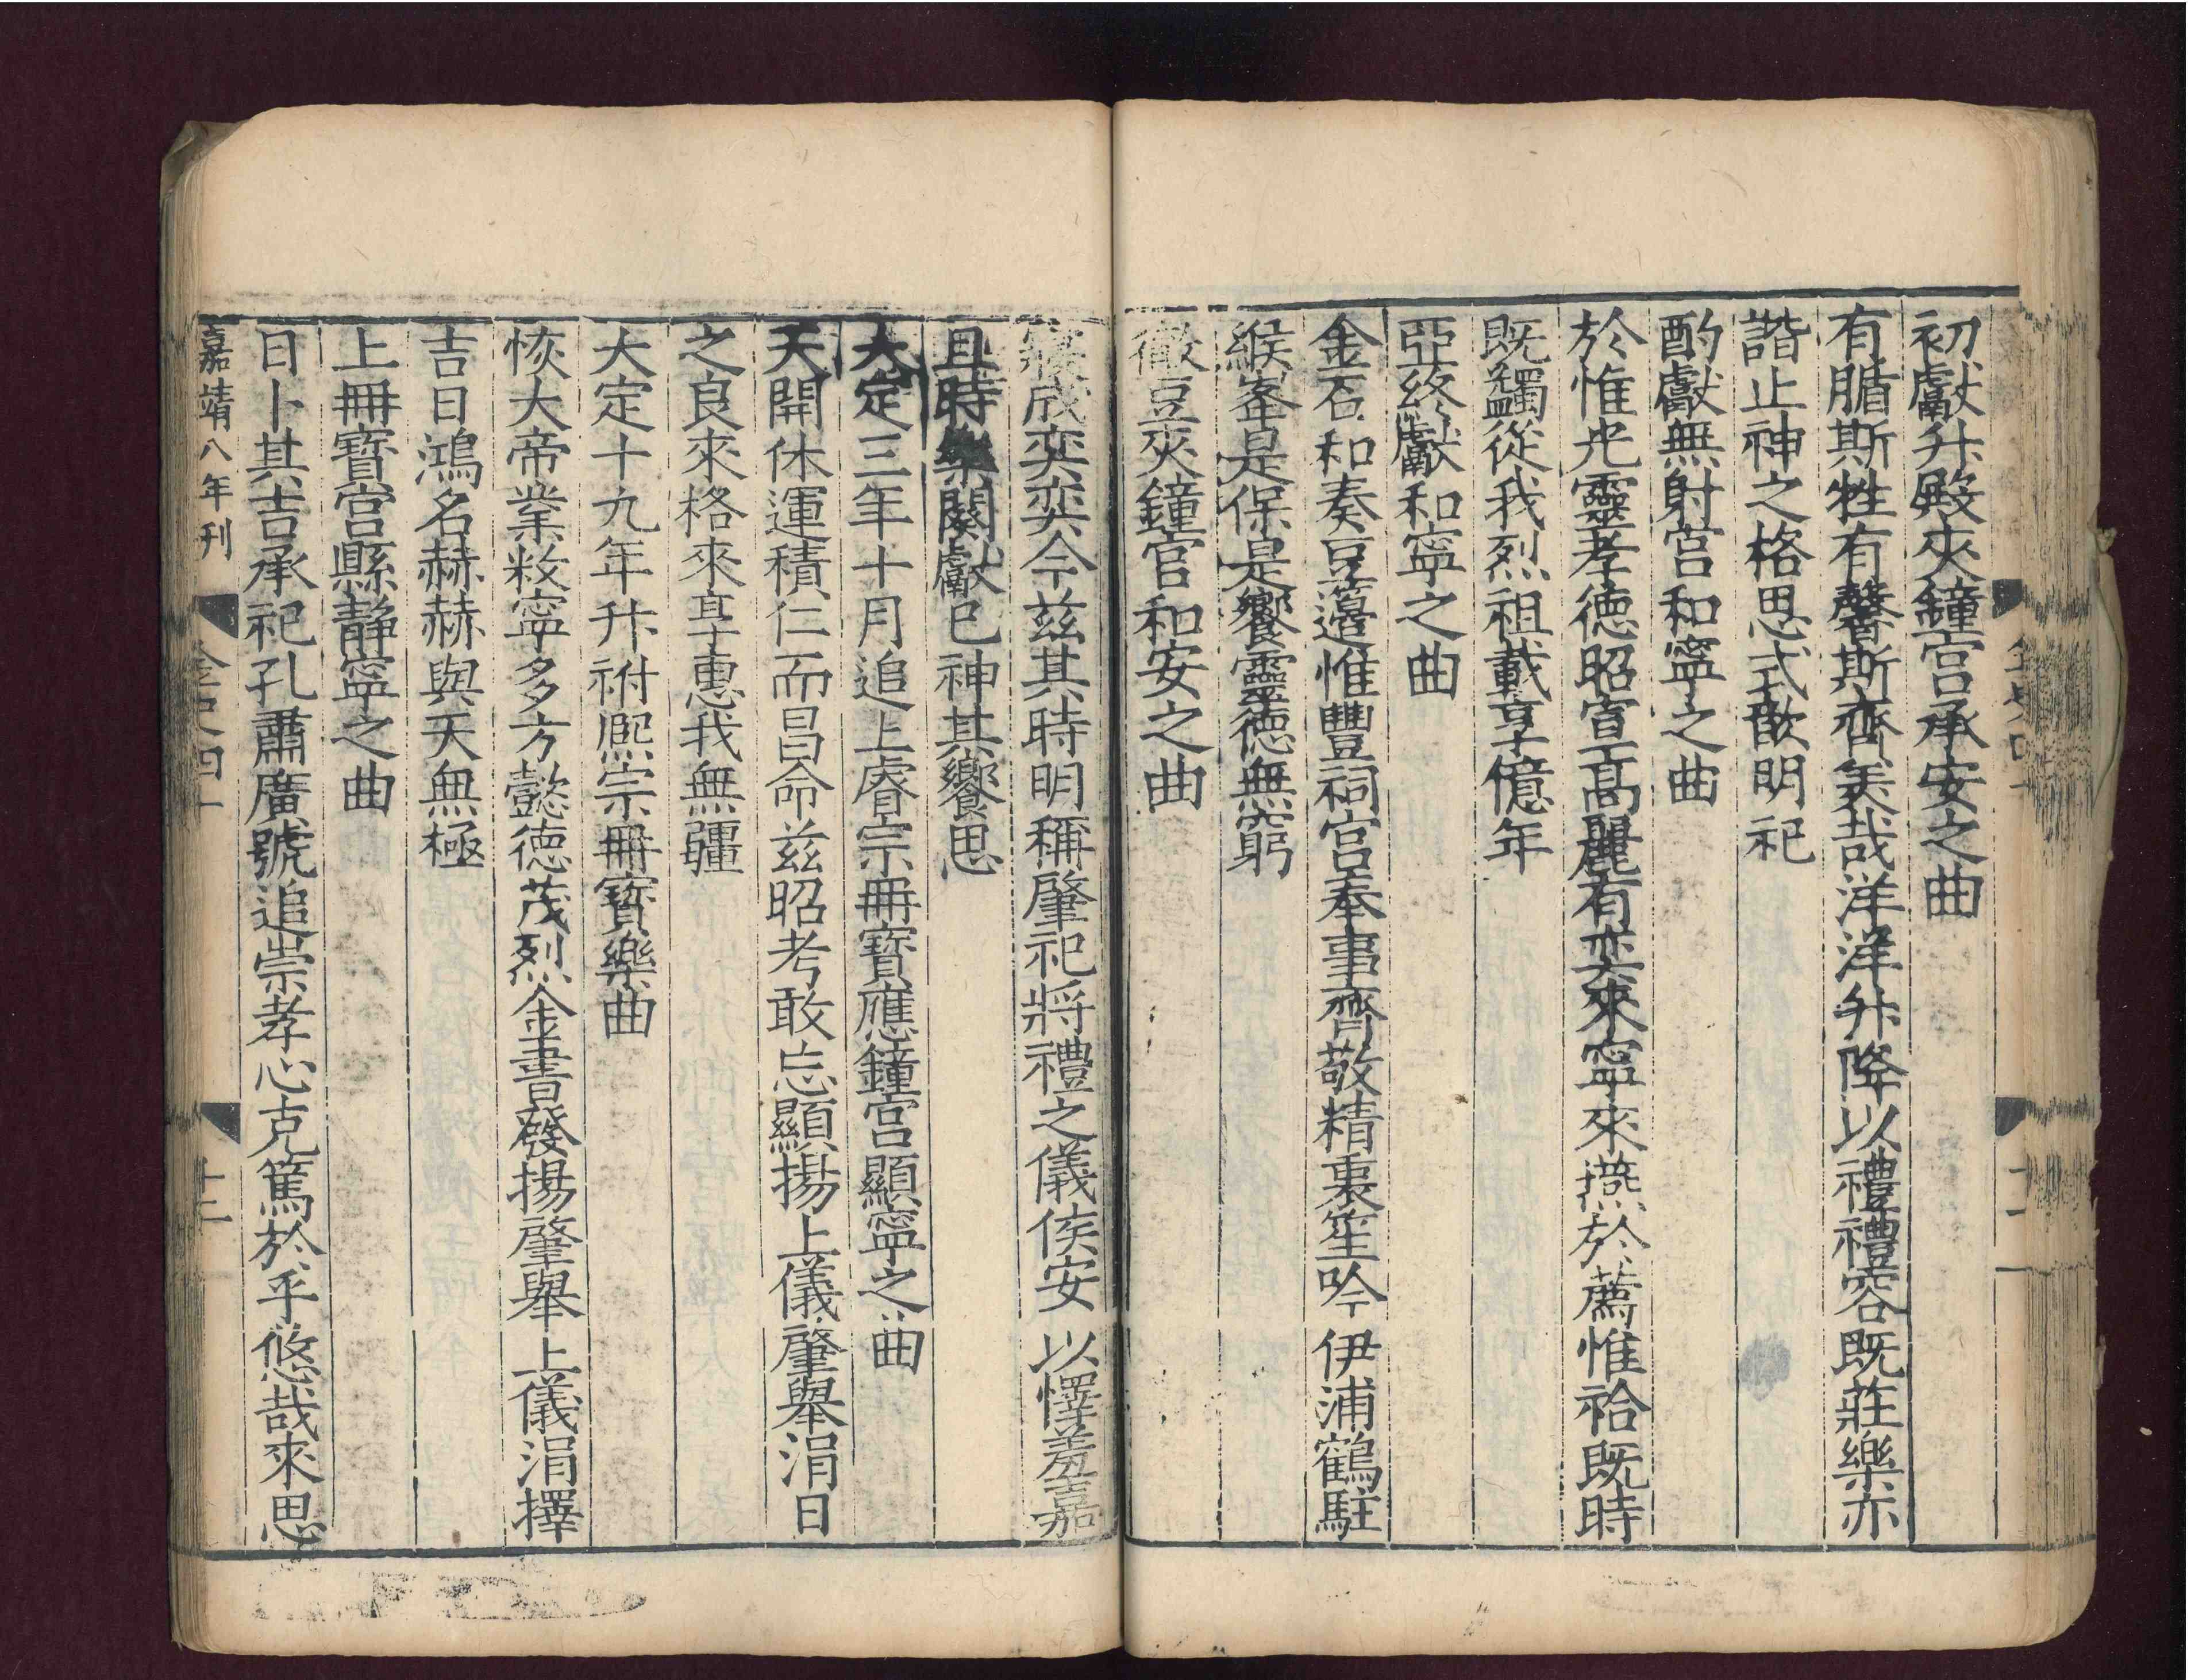 初獻升殿夾鐘宮承安之曲
有腯斯牲有馨斯齊美哉洋洋升降以禮禮容既莊樂亦
諧止神之格思式歆明祀
酌獻無射宮和寧之曲
於惟光靈孝德昭宣高麗有奕來寧來燕於薦惟祫既時
既蠲從我烈祖載享億年
亞終獻和寧之曲
金石和奏豆籩惟豐祠宮奉事齊敬精裏笙吟伊浦鶴駐
緱峯是保是饗靈德無窮
徹豆夾鐘官和安之曲
寢成奕奕今茲其時明稱肇祀將禮之儀侯安以懌羞嘉
且時樂闋獻已神其饗思
大定三年十月追上睿宗冊寶應鐘宮顯寧之曲
天開休運積仁而昌命茲昭考敢忘顯揚上儀肇舉涓日
之良來格來享惠我無疆
大定十九年升祔熙宗冊寶樂曲
恢大帝業敉寧多方懿德茂烈金書發揚肇舉上儀涓擇
吉日鴻名赫赫與天無極
上冊寶宮縣靜寧之曲
日卜其吉承祀孔肅廣號追崇孝心克篤於乎悠哉來思
嘉靖八年刊
金史四十
十二